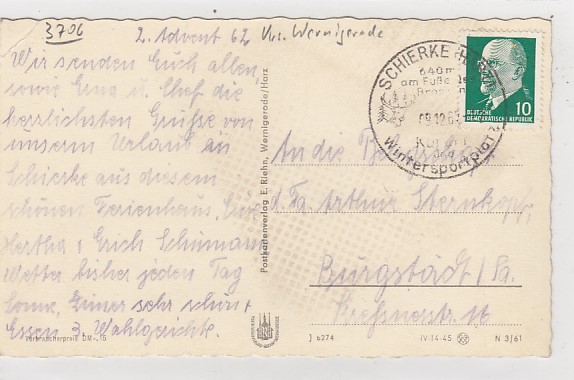 3706
2. Advent 62 Krs. Wernigerode
Wir senden Euch allen
sowie Gina u. Chef die
herzlichsten Grüsse von
unserm Urlaub in
Schierke aus diesem
schönen Ferienhaus, Eure
Hertha & Erich Schumann
Wetter bisher jeden Tag
Sonne, Zimmer sehr schön &
Essen 3 Wahlgerichte.
Verbraucherpreis DM -,15
Postkartenverlag E. Riehn, Wernigerode/Harz
SCHIERKE
640 m
am Fuße des
Brocken
09.12.62
Kur
und
Wintersportplatz
10
DEUTSCHE
DEMOKRATISCHE REPUBLIK
An die
d. Fa. Arthur Sternkopf,
Burgstädt/Sa.
J 6274
IV-14-45
N 3/61